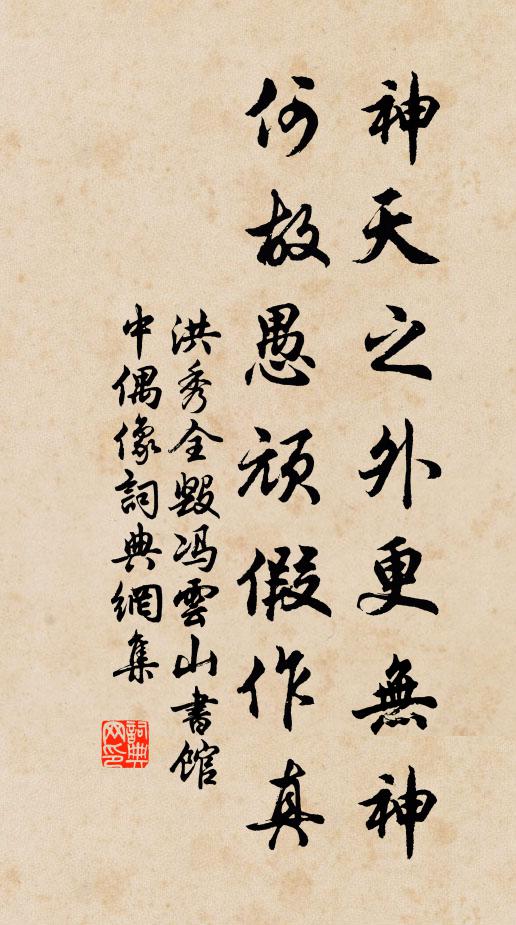 神天之外更無神
何故愚頑假作真
洪秀全毀冯雲山書館
中偶像詞典網集
詞典
网印